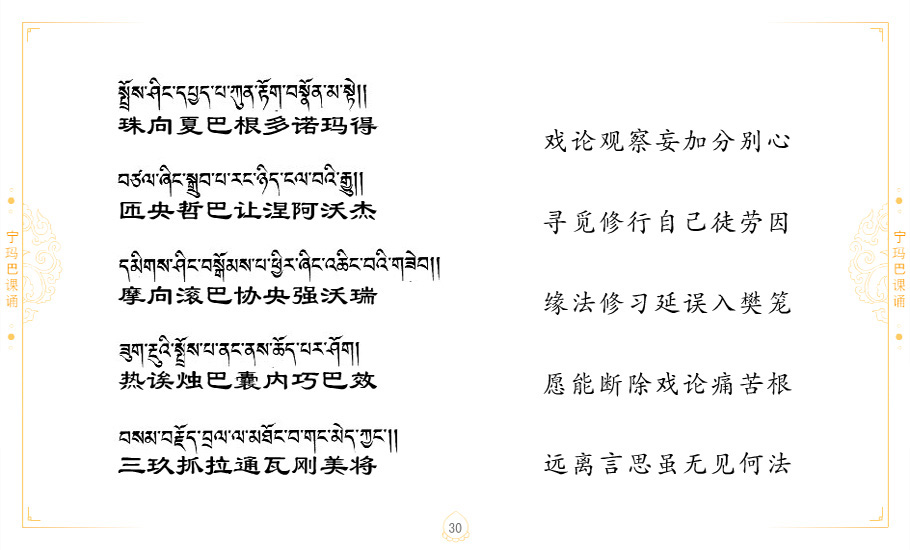 སྤྲོས་ཤིང་དཔྱད་པ་ཀུན་རྟོག་བསྣོན་མ་སྟེ།།
珠向夏巴根多诺玛得
戏论观察妄加分别心
བཙལ་ཞིང་སྒྲུབ་པ་རང་ཉིད་ངལ་བའི་རྒྱུ།།
匝央哲巴让涅阿沃杰
寻觅修行自己徒劳因
དམིགས་ཤིང་བསྒོམས་པ་ཕྱིར་ཞིང་འཆིང་བའི་གཟེབ།།
摩向滚巴协央强沃瑞
缘法修习延误入樊笼
ཟུག་རྔུའི་སྤྲོས་པ་ནང་ནས་ཆོད་པར་ཤོག།
热诶烛巴囊内巧巴效
愿能断除戏论痛苦根
བསམ་བརྗོད་བྲལ་ལ་མཐོང་བ་གང་མེད་ཀྱང་།།
三玖抓拉通瓦刚美将
远离言思虽无见何法
宁玛巴课诵
宁玛巴课诵
30